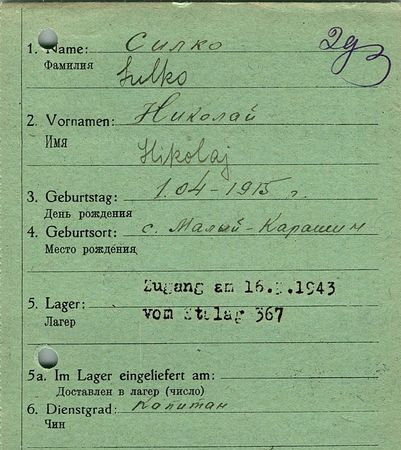 1. Name: Силко
Фамилия
Sulko
2. Vornamen: Николай
Имя
Nikolaj
3. Geburtstag: 1.04-1915 г.
День рождения
4. Geburtsort: с. Малый-Карашин
Место рождения
Zugang am 16. .1943
5. Lager: vom Stalag 367
Лагер
5a. Im Lager eingeliefert am:
Доставлен в лагер (число)
6. Dienstgrad: Капитан
Чин